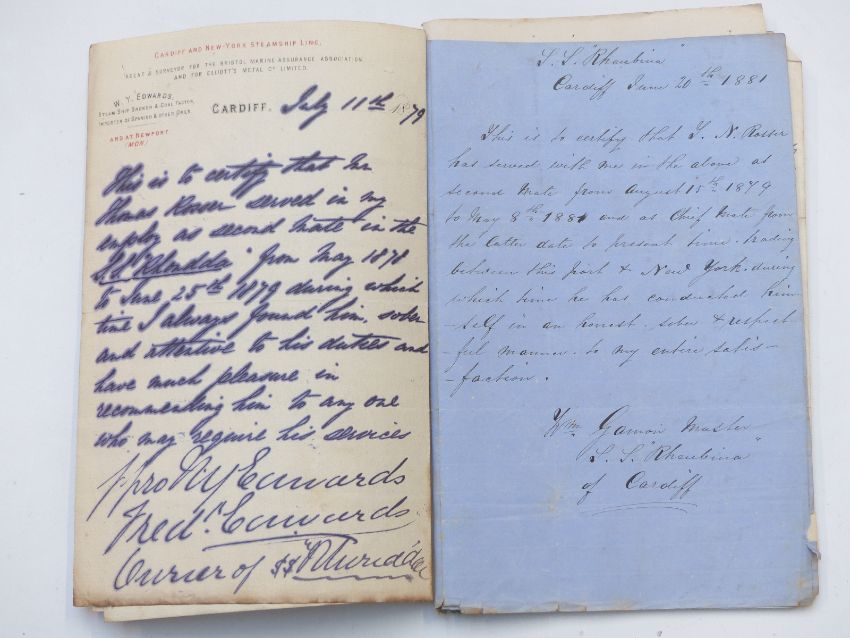 CARDIFF AND NEW-YORK STEAMSHIP LINE.
AGENT & SURVEYOR FOR THE BRISTOL MARINE ASSURANCE ASSOCIATION
AND FOR ELLIOTT'S METAL CO LIMITED.
W. Y. EDWARDS,
STEAM SHIP BROKER & COAL FACTOR,
IMPORTER OF SPANISH & OTHER ORES.
AND AT NEWPORT
(MON)
CARDIFF. July 11th 1879
This is to certify that Mr
Thomas Rosser served in my
employ as second mate in the
S.S "Rhondda" from May 1878
to June 25th 1879 during which
time I always found him, sober
and attentive to his duties and
have much pleasure in
recommending him to any one
who may require his services
p pro W Y Edwards
Fredk Edwards
Owner of SS "Rhondda"
S. S. "Rhiwbina"
Cardiff June 20th 1881
This is to certify that T. N. Rosser
has served with me in the above as
second mate from August 15th 1879
to May 8th 1881 and as Chief Mate from
the latter date to present time. trading
between this port & New York. during
which time he has conducted him
-self in an honest. sober & respect
-ful manner. to my entire satis-
-faction.
Wm Gamon Master
S. S. "Rhiwbina"
of Cardiff